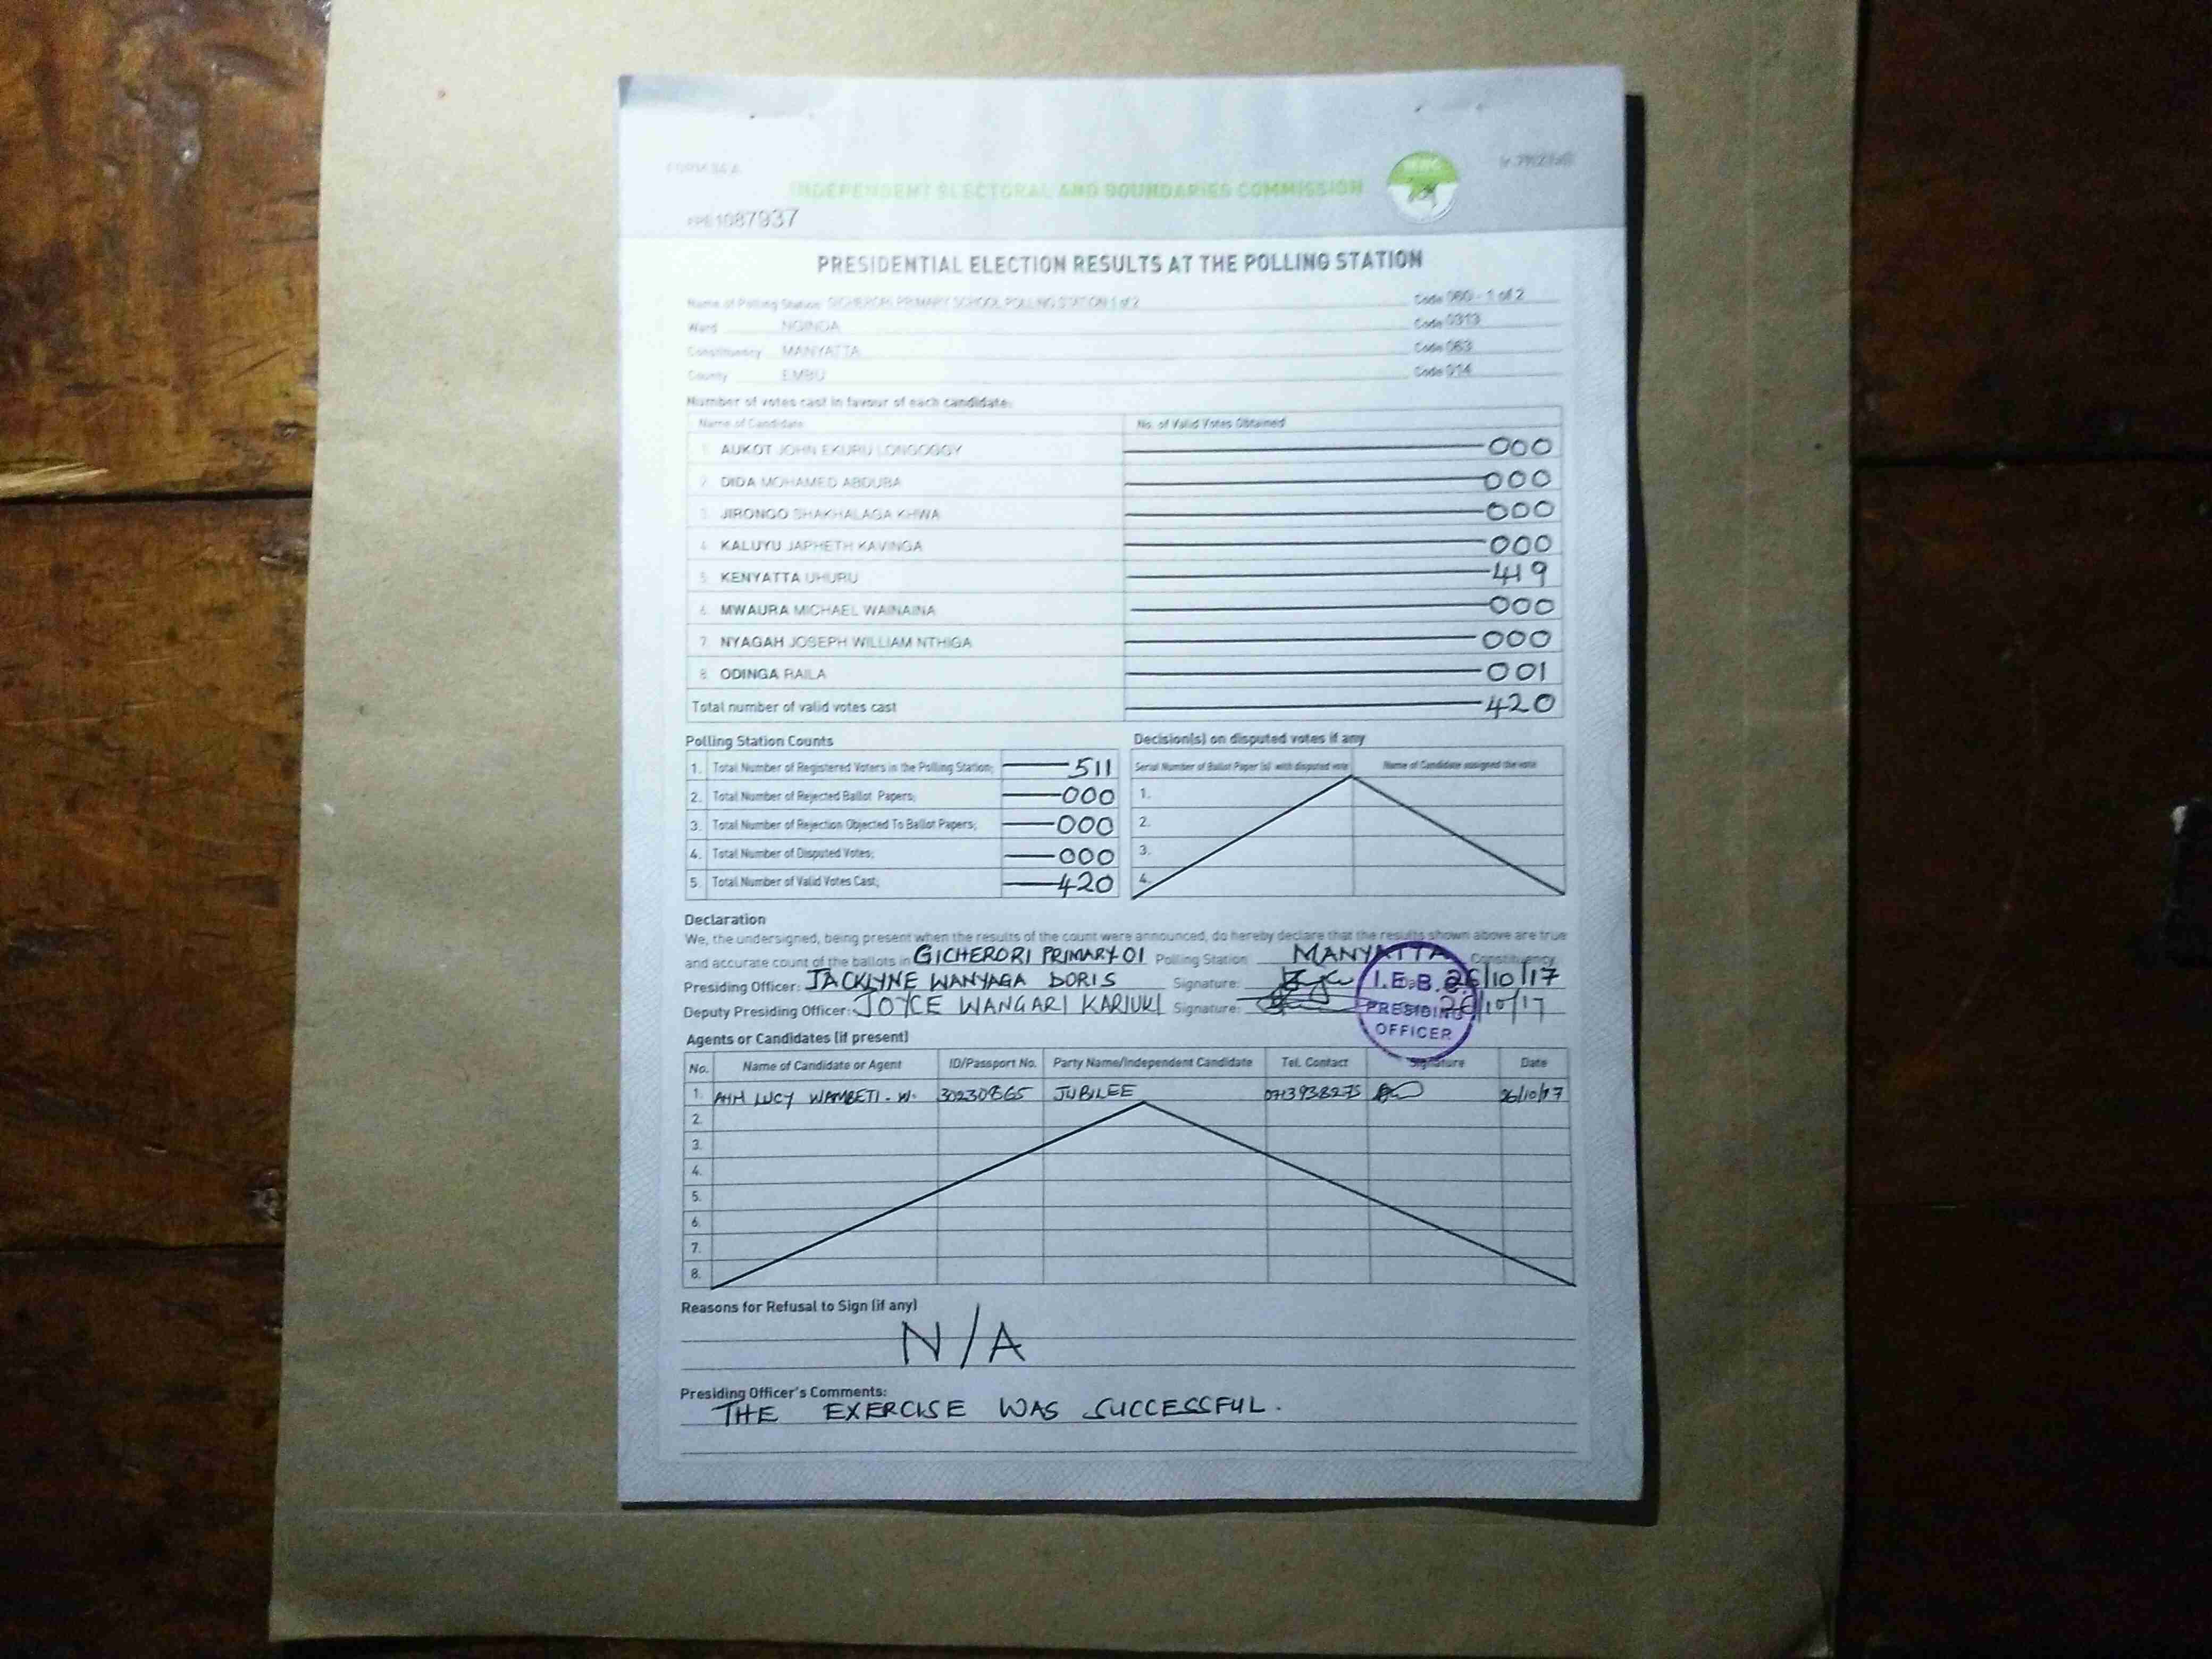 FORM 34 A
INDEPENDENT ELECTORAL AND BOUNDARIES COMMISSION
1087937
PRESIDENTIAL ELECTION RESULTS AT THE POLLING STATION
Name of Polling Station GICHERORI PRIMARY SCHOOL POLLING STATION 1 of 2 Code 060 - 1 of 2
Ward NGINDA Code 0313
Constituency MANYATTA Code 063
County EMBU Code 014
Number of votes cast in favour of each candidate:
Name of Candidate No. of Valid Votes Obtained
1. AUKOT JOHN EKURU LONGOGGY 000
2. DIDA MOHAMED ABDUBA 000
3. JIRONGO SHAKHALAGA KHWA 000
4. KALUYU JAPHETH KAVINGA 000
5. KENYATTA UHURU 419
6. MWAURA MICHAEL WAINAINA 000
7. NYAGAH JOSEPH WILLIAM NTHIGA 000
8. ODINGA RAILA 001
Total number of valid votes cast 420
Polling Station Counts
1. Total Number of Registered Voters in the Polling Station; 511
2. Total Number of Rejected Ballot Papers; 000
3. Total Number of Rejection Objected To Ballot Papers; 000
4. Total Number of Disputed Votes; 000
5. Total Number of Valid Votes Cast; 420
Decision(s) on disputed votes if any
Serial Number of Ballot Paper (s) with disputed vote Name of Candidate assigned the vote
1.
2.
3.
4.
Declaration
We, the undersigned, being present when the results of the count were announced, do hereby declare that the results shown above are true
and accurate count of the ballots in GICHERORI PRIMARY 01 Polling Station MANYATTA Constituency.
Presiding Officer: JACKLYNE WANYAGA DORIS Signature: 26/10/17
Deputy Presiding Officer: JOYCE WANGARI KARIUKI Signature: 26/10/17
I.E.B.C.
PRESIDING
OFFICER
Agents or Candidates (if present)
No. Name of Candidate or Agent ID/Passport No. Party Name/Independent Candidate Tel. Contact Signature Date
1. LUCY WAMBETI . W. 30230865 JUBILEE 0713938275 26/10/17
2.
3.
4.
5.
6.
7.
8.
Reasons for Refusal to Sign (if any)
N/A
Presiding Officer's Comments:
THE EXERCISE WAS SUCCESSFUL.